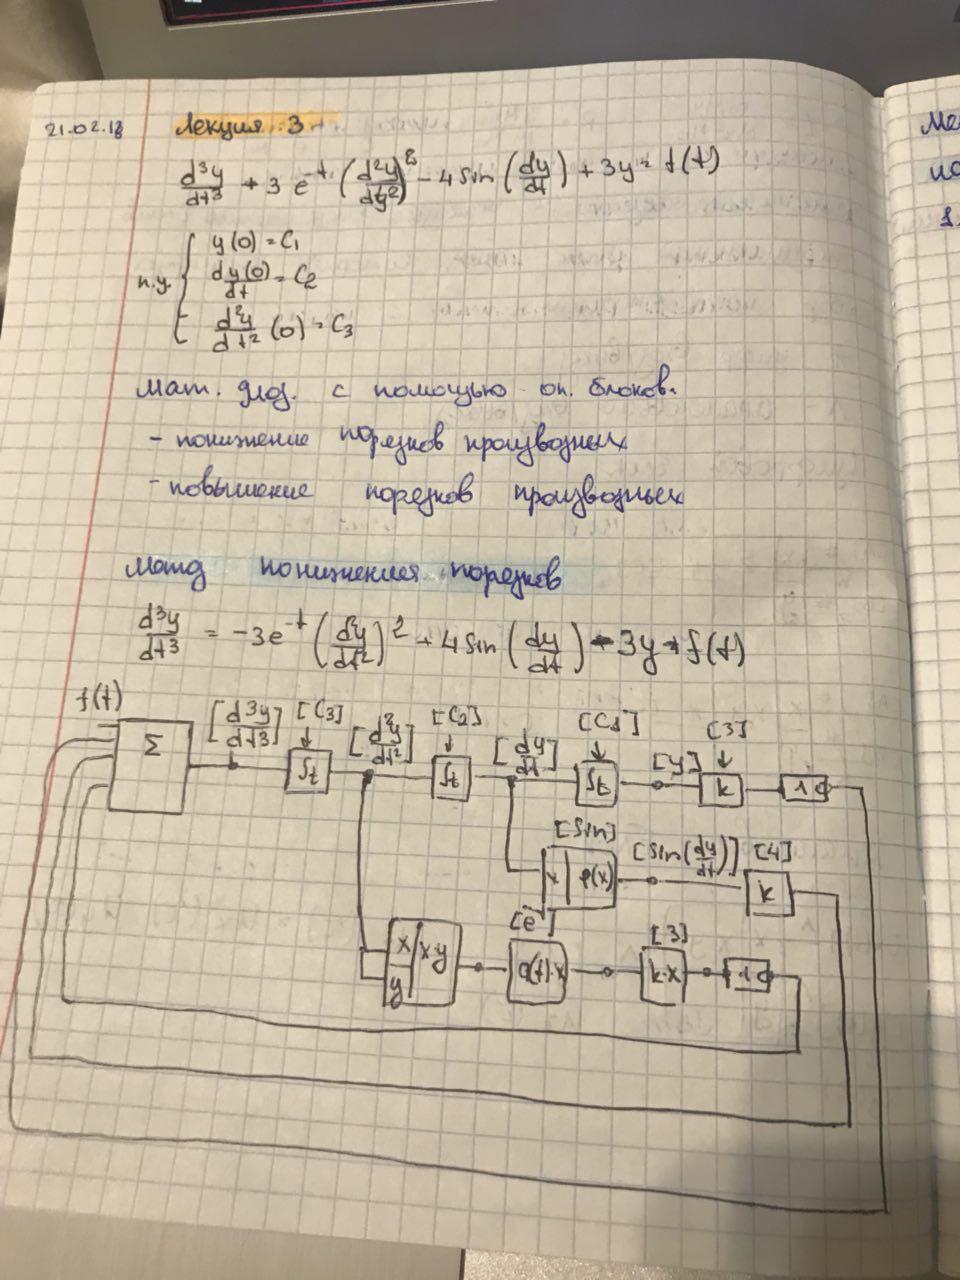 21.02.18 Лекция 3
d³y/dt³ + 3 e^-t (d²y/dy²)² - 4 sin (dy/dt) + 3y = f(t)
н.у. { y(0) = C₁
dy(0)/dt = C₂
d²y/dt² (0) = C₃
Мат. мод. с помощью оп. блоков.
- понижение порядков производных
- повышение порядков производных
Метод понижения порядков
d³y/dt³ = -3e^-t (d²y/dt²)² + 4 sin (dy/dt) - 3y + f(t)
f(t) Σ [d³y/dt³] [C₃] ∫t [d²y/dt²] [C₂] ∫t [dy/dt] [C₁] ∫t [y] [3] k 1
[sin] x φ(x) [sin(dy/dt)] [4] k
x y x·y [e^-t] a(t)·x [3] k·x 1